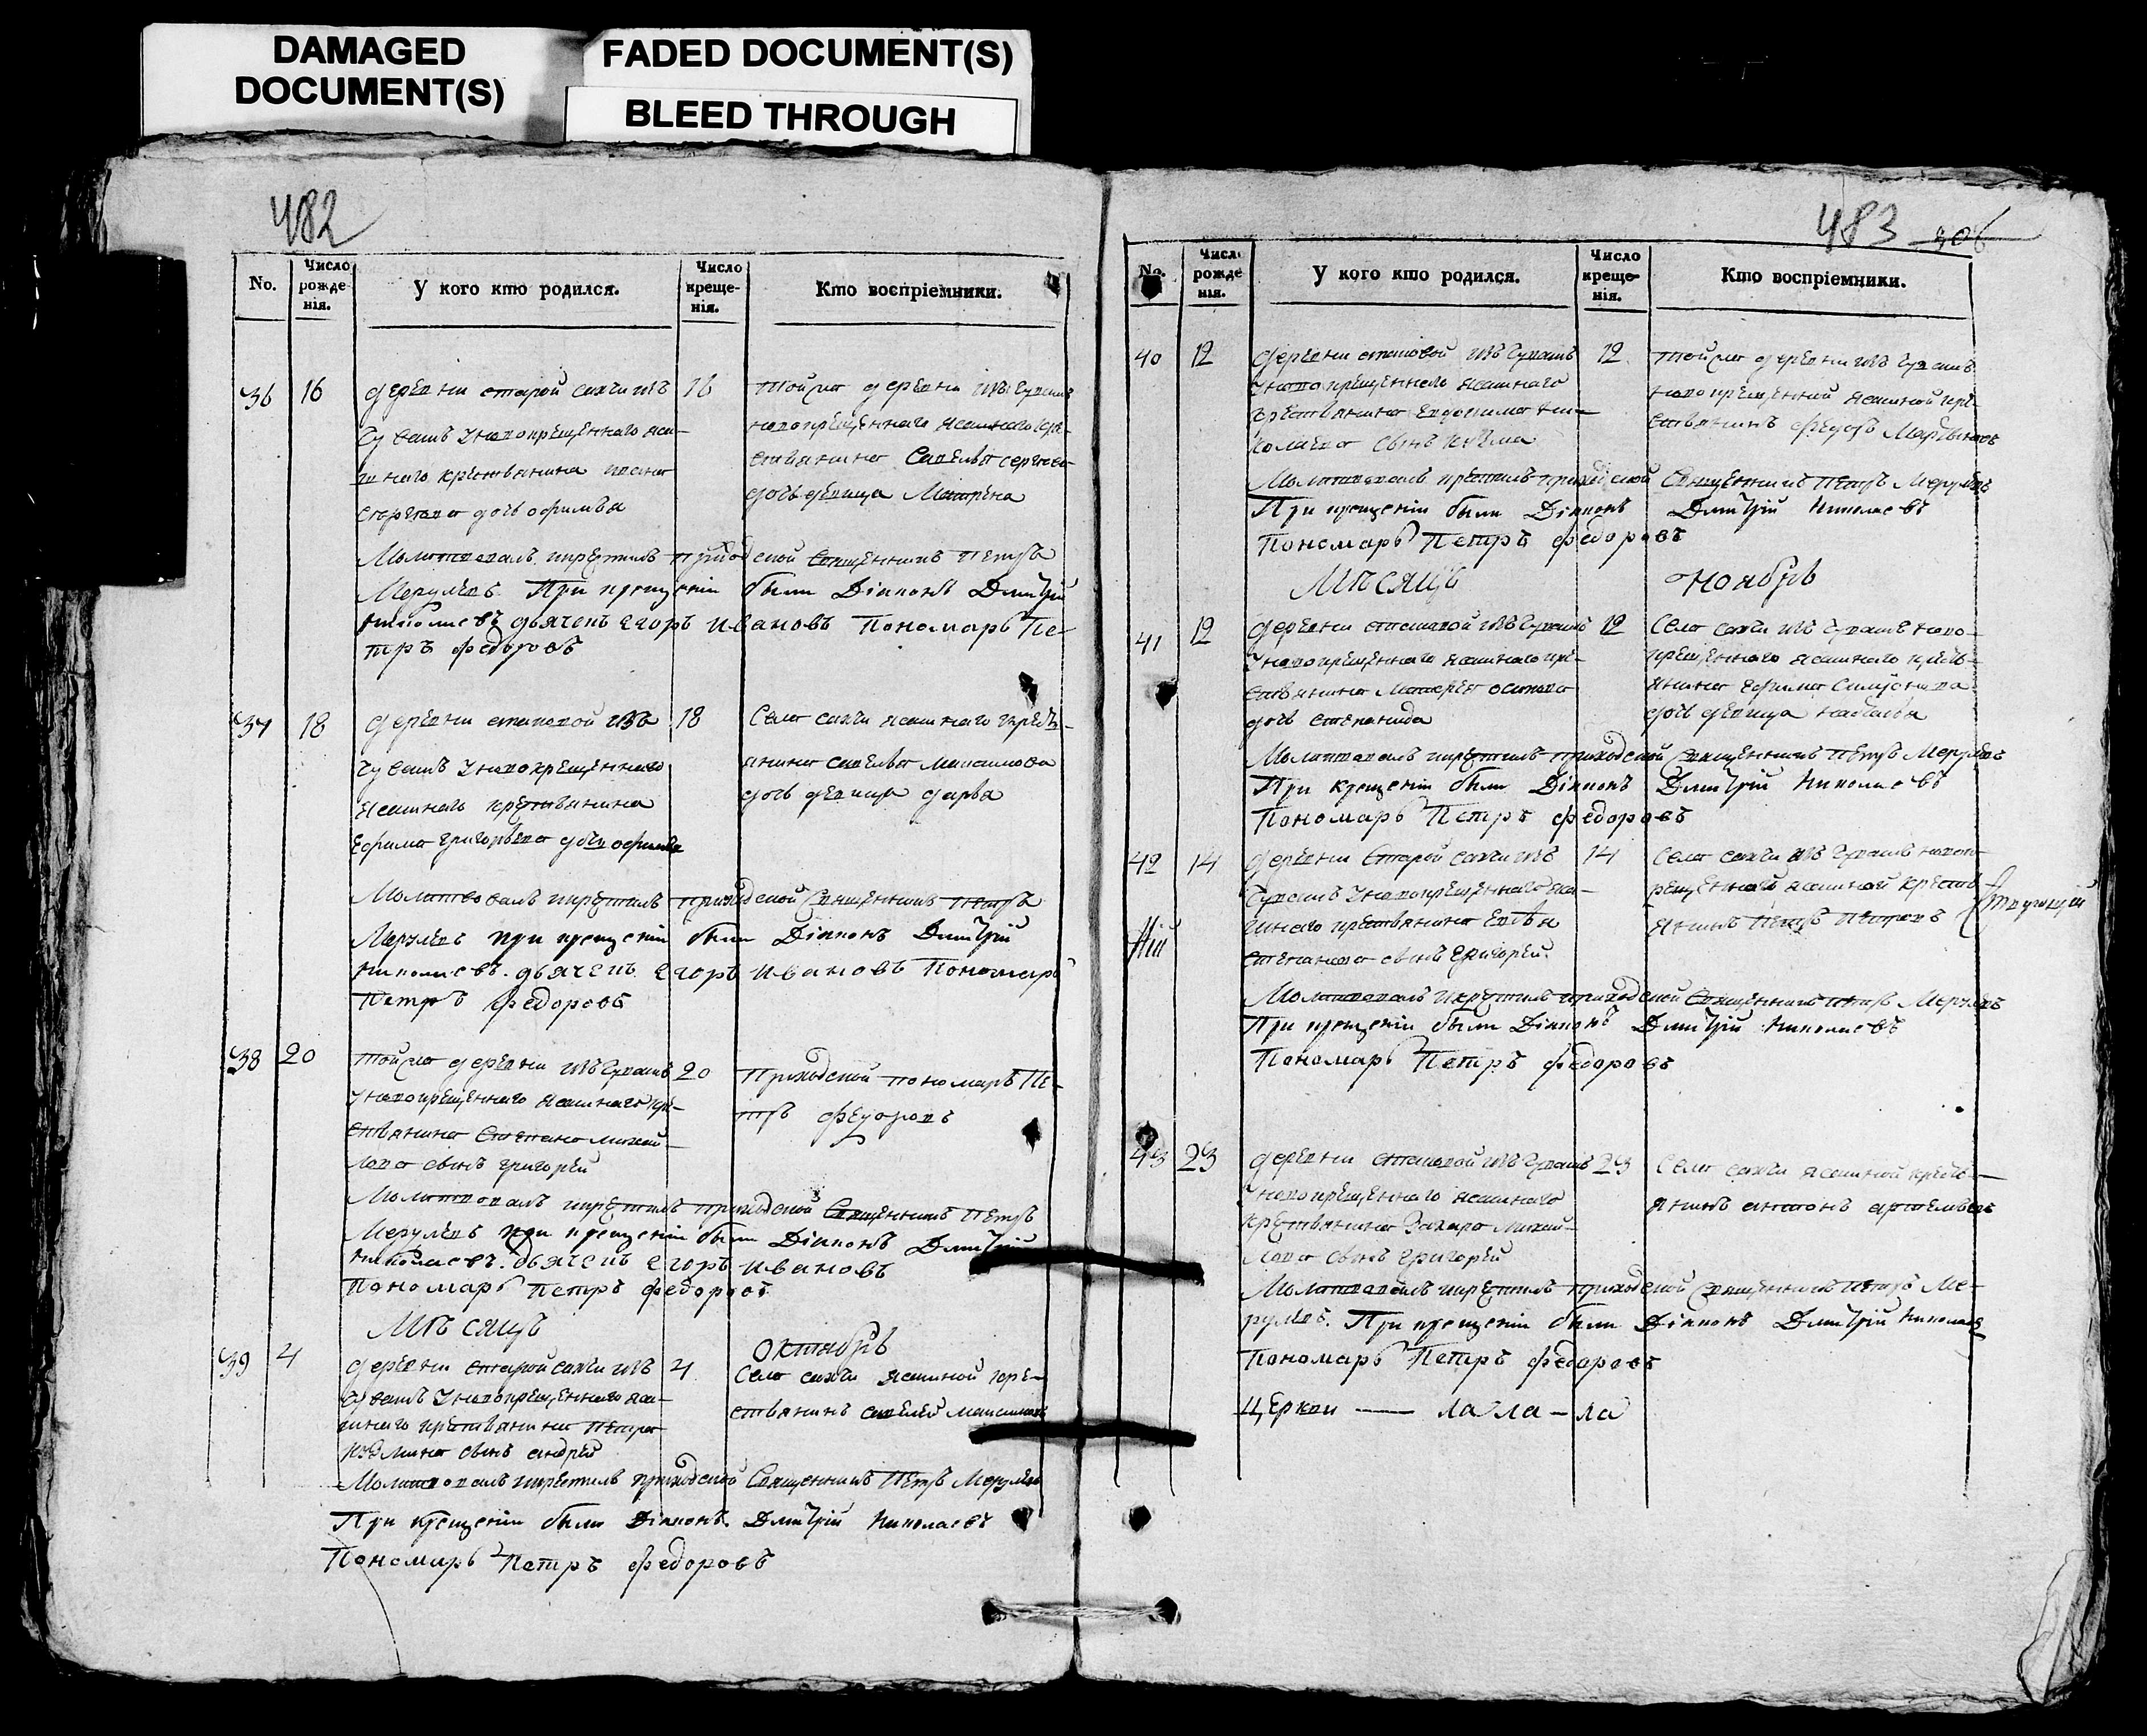 DAMAGED
DOCUMENT(S)
FADED DOCUMENT(S)
BLEED THROUGH
482
No.
Число
рожде
нія.
У кого кто родился.
Число
креще-
нія.
Кто воспріемники.
36
16
деревни старой сахчи изъ
чувашъ у новокрещеннаго яса-
шнаго крестьянина
дочь офимья
16
той же деревни изъ чувашъ
новокрещеннаго ясашнаго кре-
стьянина Савелья сергеева
дочь девица Матрена
Молитвовалъ и крестилъ приходской Священникъ Петръ
При крещеніи были Діаконъ Дмитрій
Николаевъ дьячекъ егоръ ивановъ Пономарь Пе-
тръ федоровъ
37
18
деревни изъ
чувашъ у новокрещеннаго
ясашнаго крестьянина
Ефима григорьева дочь офимья
18
Села сахчи ясашнаго кресть-
янина савелья максимова
дочь девица дарья
Молитвовалъ и крестилъ приходской Священникъ Петръ
при крещеніи были Діаконъ Дмитрій
николаевъ. дьячекъ егоръ ивановъ Пономарь
Петръ федоровъ
38
20
той же деревни изъ чувашъ
у новокрещеннаго ясашнаго кре-
стьянина Степана михай-
лова сынъ григорей
20
Приходской пономарь Пе-
тръ федоровъ
Молитвовалъ и крестилъ приходской Священникъ Петръ
при крещеніи были Діаконъ Дмитрій
николаевъ. дьячекъ егоръ ивановъ
Пономарь Петръ федоровъ
Мѣсяцъ
октябрь
39
4
деревни Старой сахчи изъ
чувашъ у новокрещеннаго яса-
шнаго крестьянина петра
козмина сынъ андрей
4
Села сахчи ясашной кре-
стьянинъ савелей максимовъ
Молитвовалъ и крестилъ приходской Священникъ Петръ
При крещеніи были Діаконъ Дмитрій Николаевъ
Пономарь Петръ федоровъ
483
No.
Число
рожде
нія.
У кого кто родился.
Число
креще-
нія.
Кто воспріемники.
40
12
деревни изъ чувашъ
у новокрещеннаго ясашнаго
крестьянина евдокима ни-
колаева сынъ козма
12
той же деревни изъ чувашъ
новокрещенный ясашной кре-
стьянинъ федоръ Мартыновъ
Молитвовалъ крестилъ приходской Священникъ Петръ
При крещеніи были Діаконъ Дмитрій Николаевъ
Пономарь Петръ федоровъ
Мѣсяцъ
ноябрь
41
12
деревни изъ чувашъ
у новокрещеннаго ясашнаго кре-
стьянина осипова
дочь степанида
12
Села сахчи изъ чувашъ ново-
крещеннаго ясашнаго кресть-
янина ефима
дочь девица наталья
Молитвовалъ и крестилъ приходской Священникъ Петръ
При крещеніи были Діаконъ Дмитрій Николаевъ
Пономарь Петръ федоровъ
42
14
деревни Старой сахчи изъ
чувашъ у новокрещеннаго яса-
шнаго крестьянина
степанова сынъ григорей.
14
села сахчи изъ чувашъ новок-
рещенный ясашной кресть-
янинъ Петръ Петровъ
Молитвовалъ и крестилъ приходской Священникъ Петръ
При крещеніи были Діаконъ Дмитрій Николаевъ
Пономарь Петръ федоровъ
43
23
деревни изъ чувашъ
у новокрещеннаго ясашнаго
крестьянина Захара михай-
лова сынъ григорей
23
Села сахчи ясашной кресть-
янинъ антонъ артемьевъ
Молитвовалъ и крестилъ приходской Священникъ Петръ
При крещеніи были Діаконъ Дмитрій Николаевъ
Пономарь Петръ федоровъ
церкви